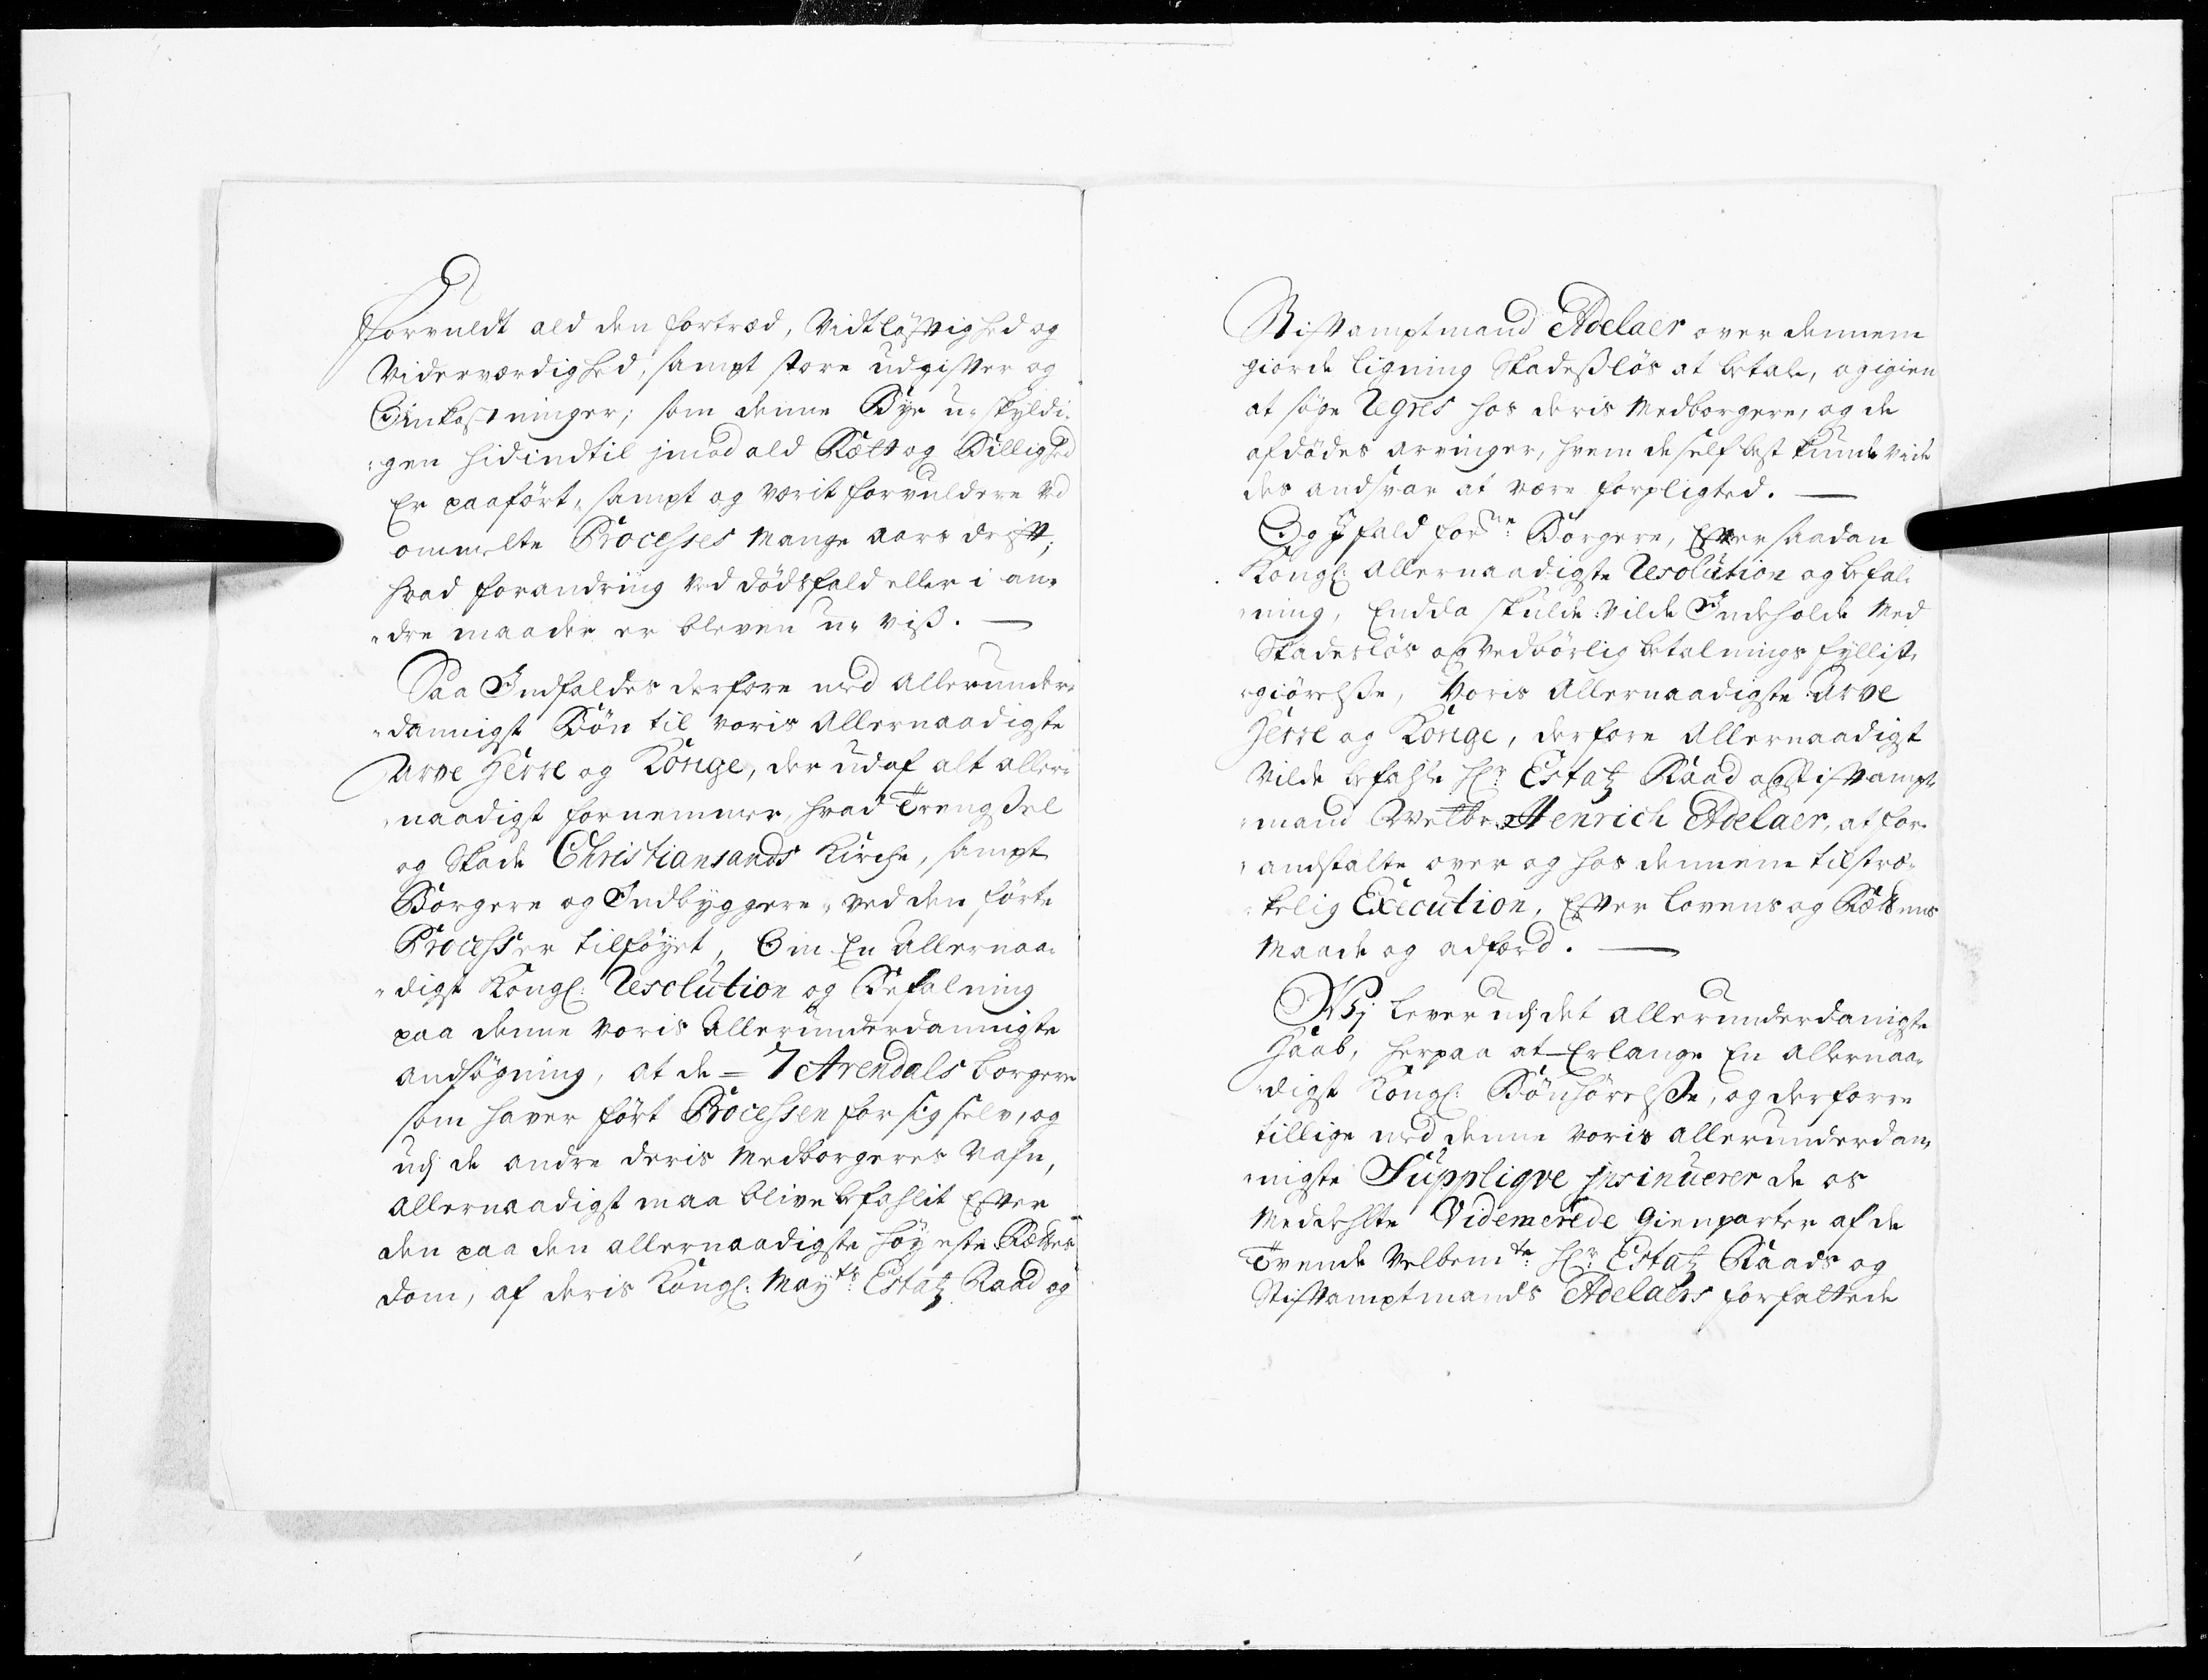 Forvuldt ald den fortræd, Vidtløftighed og
Viderværdighed, sampt store udgifter og
Omkostninger; som denne Bye u-skyldi-
-gen hidindtil jmod ald Rætt og Billighed
Er paaført, sampt og værit forvuldere ved
ommelte Processes Mange aars drift;
hvad forandring ved dødsfald eller i an-
-dre maader er bleven u-viss. —
Saa Indfaldes derfore med allerunder-
-dannigst Bøn til voris Allernaadigste
Arve Herre og Konge, der udaf alt aller-
-naadigst fornemmer, hvad Trengssel
og Skade Christiansands Kirche, sampt
Borgere og Indbyggere, ved den førte
Processer tilføyet, Om En Allernaa-
-digst Kongl: Resolution og Befalning
paa denne voris allerunderdannigste
andsøgning, at de = 7 Arendals borgere
som haver ført Processen for sig selv, og
udj de andre deris Medborgeres Nafn,
Allernaadigst maa blive befahlit Efter
den paa den allernaadigste høyeste Rættes
dom, af deris Kongl: Mayts: Estatz Raad og
Stiftamptmand Adelaer over dennem
giorde ligning Skadessløs at betale, og igien
at søge Regres hos deris Medborgere, og de
afdødes arvinger, hvem de self best kunde vide
des andsvar at være forpligted. —
Og J fald forne: Borgere, Efter saadan
Kongl: Allernaadigste Resolution og befal-
-ning, Endda skulde vilde Indeholde Med
Skadesløs og vedbørlig betalnings fyllist-
-giørelsse, Voris Allernaadigste Arve
Herre og Konge, derfore Allernaadigst
vilde befahle Hr: Estatz Raad og Stiftampt-
-mand Welbr. Henrich Adelaer, at for-
-andstalte over og hos dennem tilstræ-
-kelig Execution, Efter lovens og Rættens
Maade og adfærd. —
Wj lever udj det allerunderdanigste
Haab, herpaa at Erlange En allernaa-
-digst Kongl: Bønhørelsse, og derforre
tillige med denne voris allerunderdan-
-nigste Suppliqve jnsinuerer de os
Meddehlte Videmerede Gienparter af de
Tvende Velbemte: Hr: Estatz Raads og
Stiftamptmands Adelaers forfattede